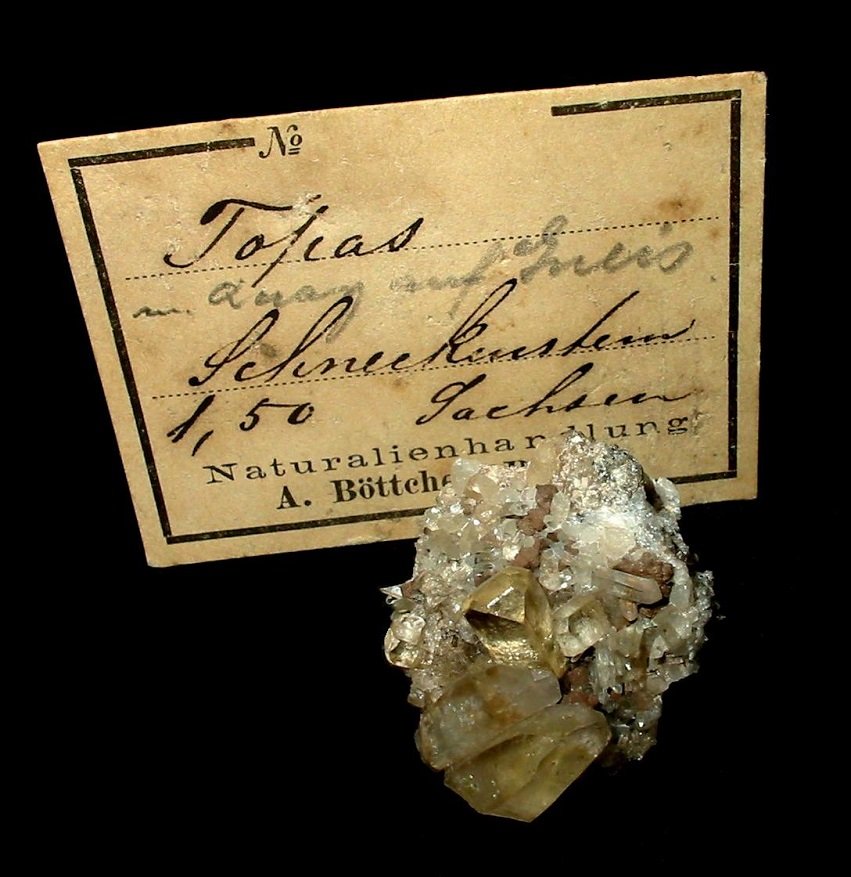 No
Topas
m. Quarz auf Gneis
Schneckenstein
1,50 Sachsen
Naturalienhandlung
A. Böttche